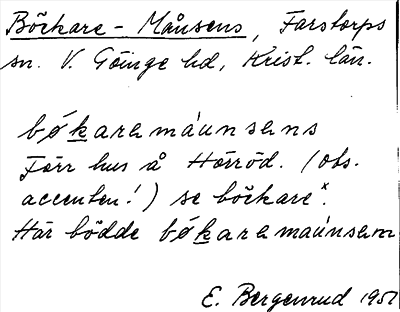 Böckare-Månsens, Farstorps
sn. V. Göinge hd, Krist. län.
bø̀karamáunsens
Förr hus å Hörröd. (obs.
accenten!) se böckareˣ.
Här bodde bøkaramaúnsen
E. Bergenrud 1951